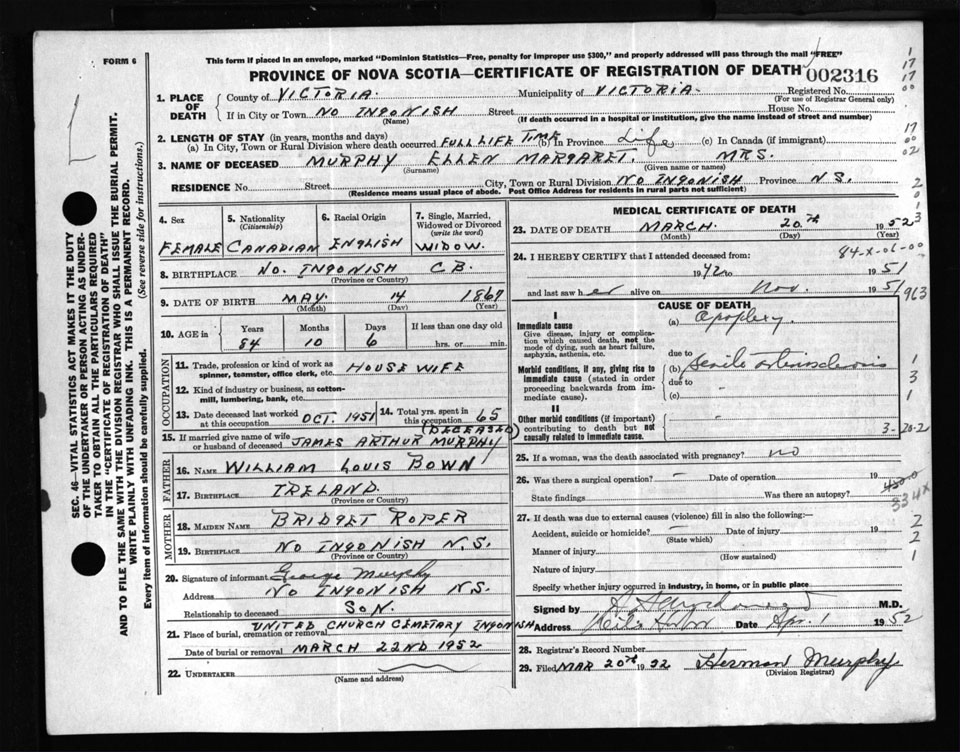 FORM 6
This form if placed in an envelope, marked "Dominion Statistics—Free, penalty for improper use $300," and properly addressed will pass through the mail "FREE"
PROVINCE OF NOVA SCOTIA—CERTIFICATE OF REGISTRATION OF DEATH
002316
1. PLACE OF DEATH
County of VICTORIA. Municipality of VICTORIA. Registered No.
(For use of Registrar General only)
If in City or Town NO INGONISH Street House No.
(Name) (If death occurred in a hospital or institution, give the name instead of street and number)
2. LENGTH OF STAY (in years, months and days)
(a) In City, Town or Rural Division where death occurred FULL LIFE TIME (b) In Province Life (c) In Canada (if immigrant)
3. NAME OF DECEASED MURPHY ELLEN MARGARET. MRS.
(Surname) (Given name or names)
RESIDENCE No. Street City, Town or Rural Division NO INGONISH Province N.S.
(Residence means usual place of abode. Post Office Address for residents in rural parts not sufficient)
4. Sex
FEMALE
5. Nationality (Citizenship)
CANADIAN
6. Racial Origin
ENGLISH
7. Single, Married, Widowed or Divorced (write the word)
WIDOW.
8. BIRTHPLACE NO. INGONISH C.B.
(Province or Country)
9. DATE OF BIRTH MAY 14 1867
(Month) (Day) (Year)
10. AGE in Years Months Days If less than one day old
84 10 6 hrs. or min.
OCCUPATION
11. Trade, profession or kind of work as spinner, teamster, office clerk, etc. HOUSE WIFE
12. Kind of industry or business, as cotton-mill, lumbering, bank, etc.
13. Date deceased last worked at this occupation OCT. 1951
14. Total yrs. spent in this occupation 65
15. If married give name of wife or husband of deceased JAMES ARTHUR MURPHY (DECEASED)
FATHER
16. NAME WILLIAM LOUIS BOWN
17. BIRTHPLACE IRELAND.
(Province or Country)
MOTHER
18. MAIDEN NAME BRIDGET ROPER
19. BIRTHPLACE NO INGONISH N.S.
(Province or Country)
20. Signature of informant George Murphy
Address NO INGONISH N.S.
Relationship to deceased SON.
21. Place of burial, cremation or removal UNITED CHURCH CEMETARY INGONISH
Date of burial or removal MARCH 22ND 1952
22. UNDERTAKER
(Name and address)
MEDICAL CERTIFICATE OF DEATH
23. DATE OF DEATH MARCH. 20TH 1952
(Month) (Day) (Year)
84-X-06-00
24. I HEREBY CERTIFY that I attended deceased from:
1942 to 1951
and last saw her alive on Nov. 1951
963
CAUSE OF DEATH
I
Immediate cause
Give disease, injury or complication which caused death, not the mode of dying, such as heart failure, asphyxia, asthenia, etc.
(a) Apoplexy.
due to
Morbid conditions, if any, giving rise to immediate cause (stated in order proceeding backwards from immediate cause).
(b) Senile
due to
(c)
II
Other morbid conditions (if important) contributing to death but not causally related to immediate cause.
3-20-2
25. If a woman, was the death associated with pregnancy? no
26. Was there a surgical operation? – Date of operation 19
State findings Was there an autopsy?
334X
27. If death was due to external causes (violence) fill in also the following:—
Accident, suicide or homicide? – Date of injury 19
(State which)
Manner of injury
(How sustained)
Nature of injury
Specify whether injury occurred in industry, in home, or in public place
Signed by M.D.
Address Date Apr. 1 1952
28. Registrar's Record Number
29. Filed MAR 20TH 1952 Herman Murphy
(Division Registrar)
SEC. 46—VITAL STATISTICS ACT MAKES IT THE DUTY
OF THE UNDERTAKER OR PERSON ACTING AS UNDERTAKER TO OBTAIN ALL THE PARTICULARS REQUIRED
IN THE "CERTIFICATE OF REGISTRATION OF DEATH"
AND TO FILE THE SAME WITH THE DIVISION REGISTRAR WHO SHALL ISSUE THE BURIAL PERMIT.
WRITE PLAINLY WITH UNFADING INK. THIS IS A PERMANENT RECORD.
Every item of Information should be carefully supplied. (See reverse side for instructions.)
1
17
17
00
17
00
02
2
0
1
3
1
3
1
2
2
1